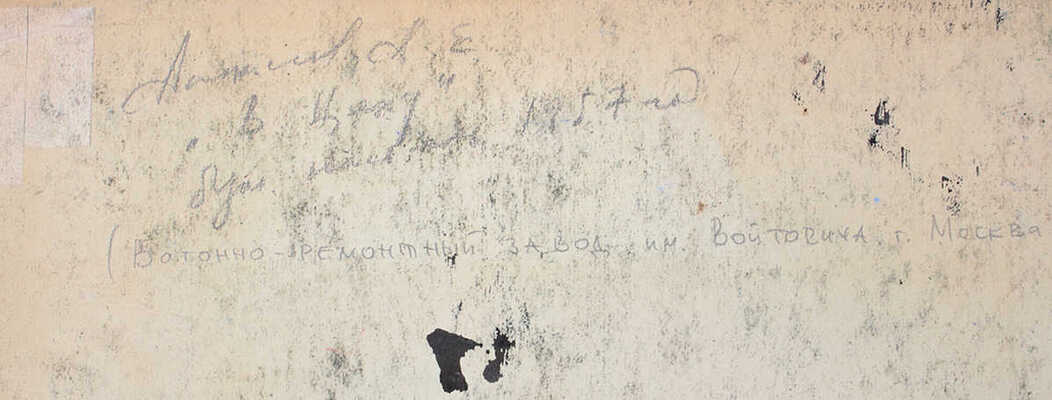 А. Е.
"В Цеху"
бум. масло 1957 год
(Вагонно-ремонтный завод им. Войтовича г. Москва